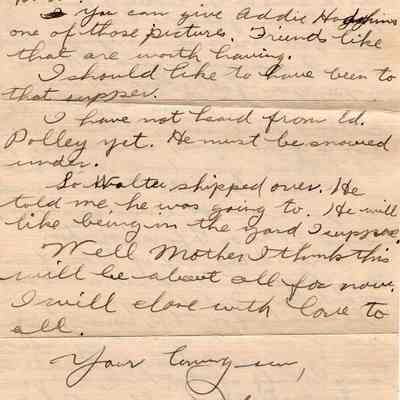 You can give Addie Hodgkins
one of those pictures. Friends like
that are worth having.
I should like to have been to
that supper.
I have not heard from Ed.
Polley yet. He must be snowed
under.
So Walter shipped over. He
told me he was going to. He will
like being in the yard I suppose.
Well Mother I think this
will be about all for now.
I will close with love to
all.
Your loving son,